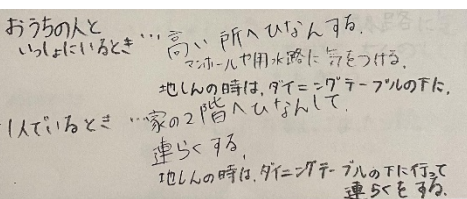 おうちの人と
いっしょにいるとき…高い所へひなんする.
マンホールや用水路に気をつける.
地しんの時は,ダイニングテーブルの下に.
1人でいるとき…家の2階へひなんして,
連らくする.
地しんの時は,ダイニングテーブルの下に行って
連らくをする.